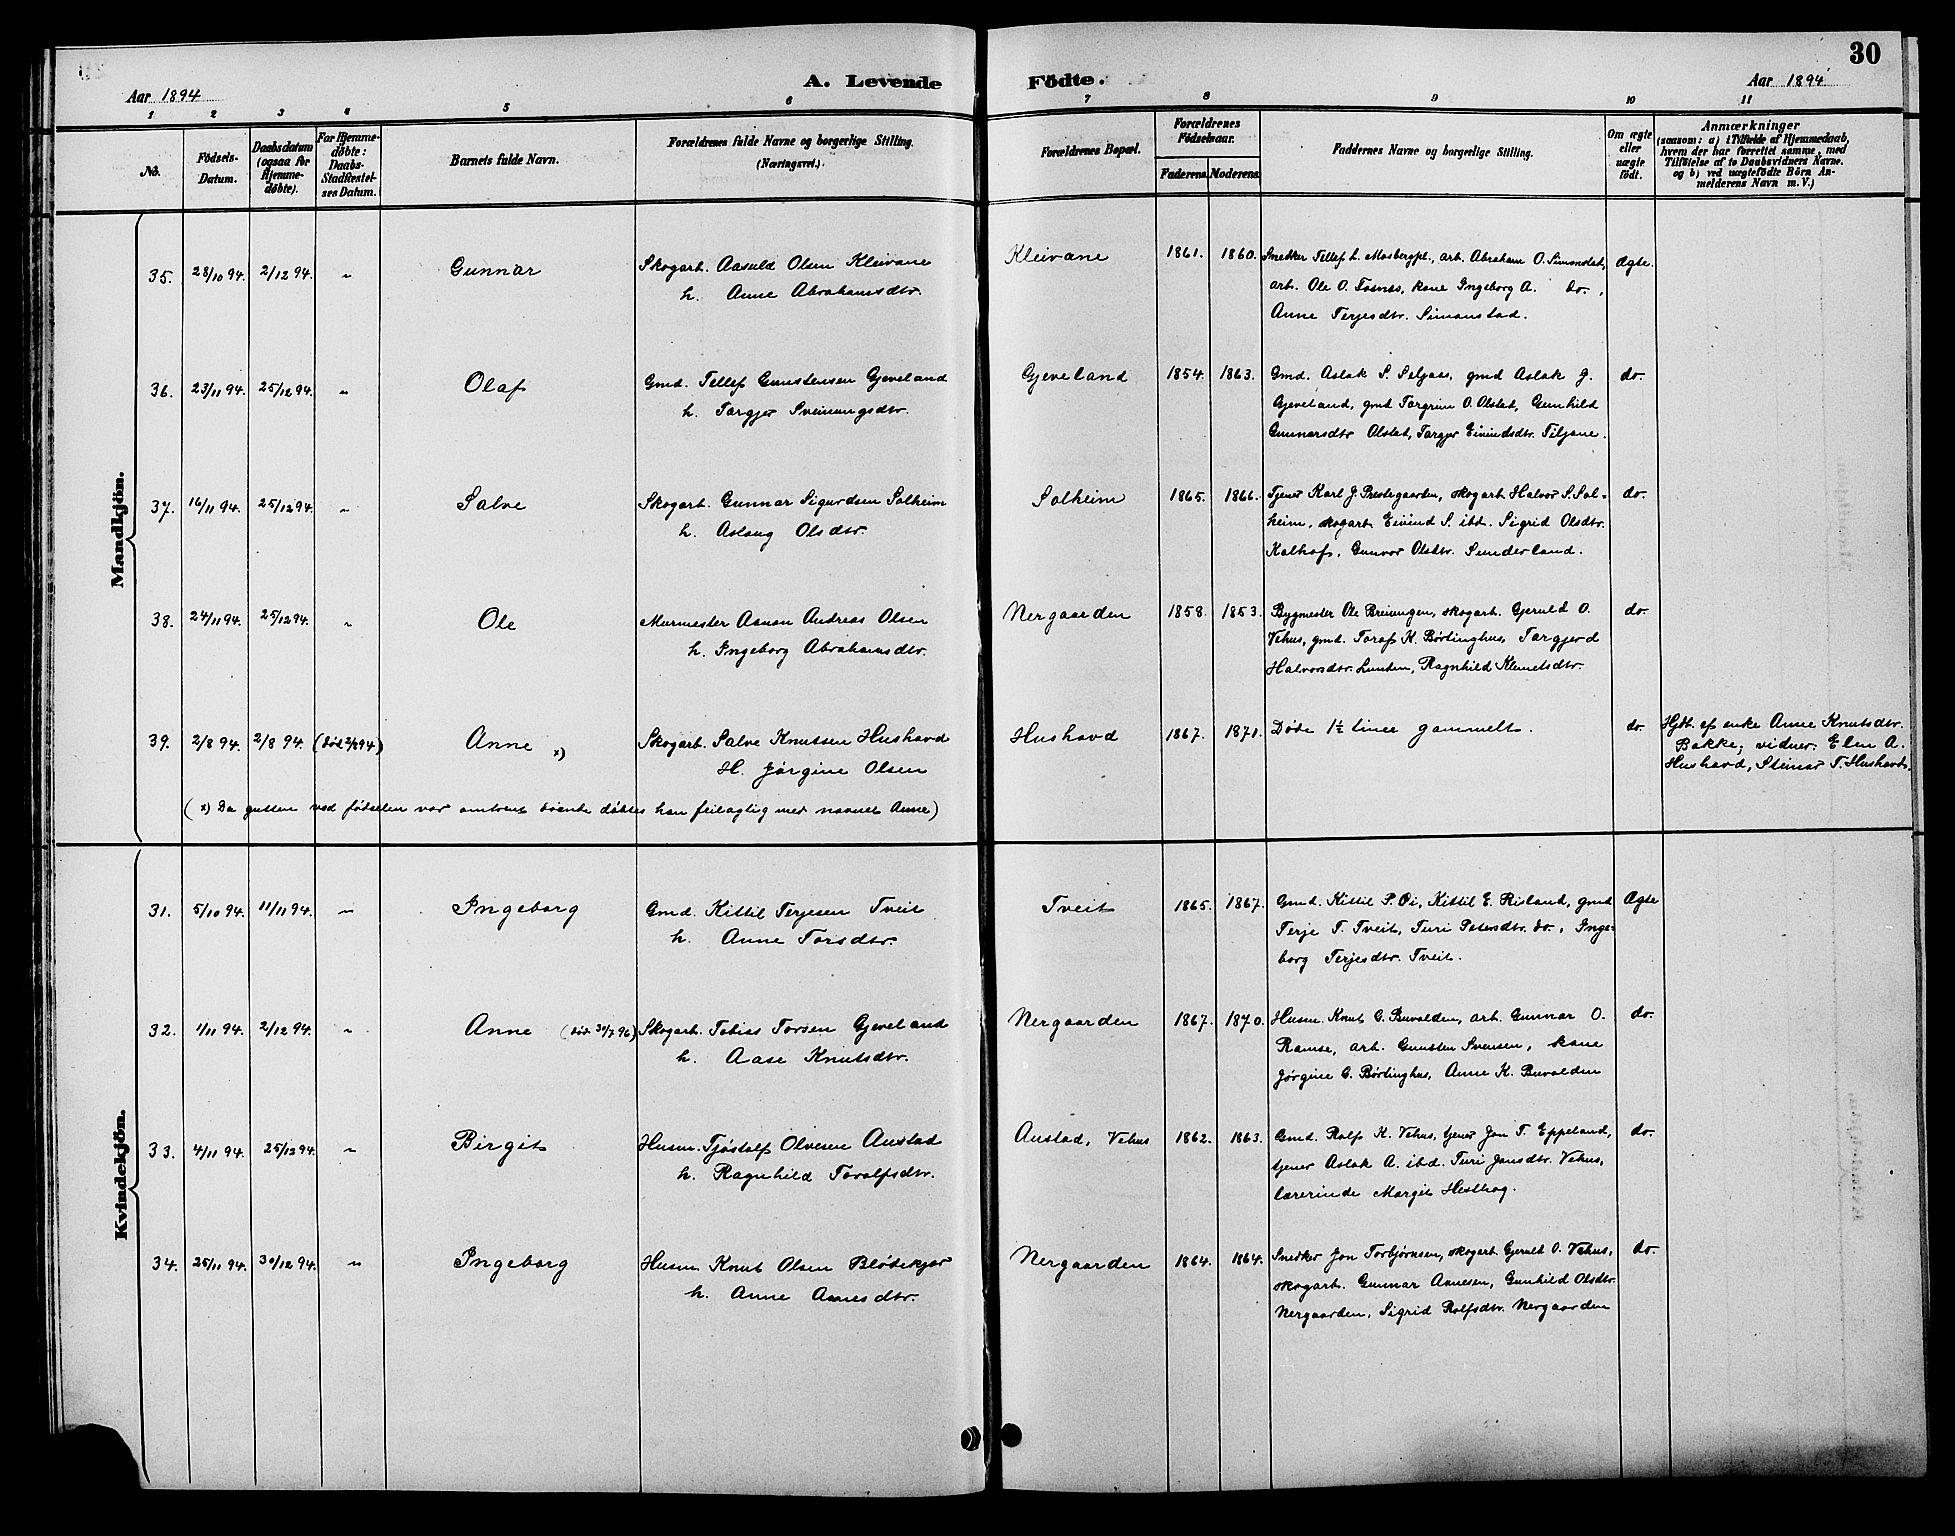 30
A. Levende Födte.
Aar 1894
Aar 1894
1 2 3 4 5 6 7 8 9 10 11
No.
Födsels-Datum.
Daabsdatum (ogsaa for Hjemmedöbte).
For Hjemmedöbte: Daabs-Stadfæstelses Datum.
Barnets fulde Navn.
Forældrenes fulde Navne og borgerlige Stilling. (Næringsvei.)
Forældrenes Bopæl.
Forældrenes Födselsaar.
Faderens. Moderens.
Faddernes Navne og borgerlige Stilling.
Om ægte eller uægte födt.
Anmærkninger
(saasom: a) i Tilfælde af Hjemmedaab,
hvem der har forrettet samme, med
Tilföielse af to Daabsvidners Navne.
og b) ved uægtefödte Börn Anmelderens Navn m. V.)
Mandkjön.
35. 28/10 94. 2/12 94. " Gunnar Skogarb. Aasuld Olsen Kleivane Kleivane 1861. 1860. Snekker Tellef L. Mosbergpl., arb. Abraham O. Simonstad, Ægte.
h. Anne Abrahamsdtr. arb. Ole O. Fosnes, kone Ingeborg A. do.,
Anne Terjesdtr. Simonstad.
36. 23/11 94. 25/12 94. " Olaf Gmd. Tellef Gunstensen Gjeveland Gjeveland 1854. 1863. Gmd. Aslak S. Seljaas, gmd Aslak G. do.
h. Torgjer Sveinungsdtr. Gjeveland, gmd Torgrim O. Olstad, Gunhild
Gunnarsdtr Olstad, Torgjer Eivindsdtr. Tiljane.
37. 16/11 94. 25/12 94. " Salve Skogarb. Gunnar Sigurdsen Solheim Solheim 1865. 1866. Tjener Karl J. Prestegaarden, skogarb. Halvor S. Sol- do.
h. Aslaug Olsdtr. heim, skogarb. Eivind S. ibd. Sigrid Olsdtr.
Kalhof, Gunvor Olsdtr. Sunderland.
38. 24/11 94. 25/12 94. " Ole Murmester Aanon Andreas Olsen Nergaarden 1858. 1853. Bygmester Ole Breiungen, skogarb. Gjeruld O. do.
h. Ingeborg Abrahamsdtr. Vehus, gmd. Toraf K. Børtinghus, Torgjerd
Halvorsdtr. Lunden, Ragnhild Klemetsdtr.
39. 2/8 94. 2/8 94. (død 2/8 94) Anne x) Skogarb. Salve Knutsen Hushovd Hushovd 1867. 1871. Døde 1½ timee gammelt. do. Hjdt. af enke Anne Knutsdtr.
H. Jørgine Olsen Bakke; vidner: Elen A.
Hushovd, Steinar T. Hushovd.
(x) Da gutten ved fødselen var omtrent døende døbtes han feilagtig med navnet Anne)
Kvindekjön.
31. 5/10 94. 11/11 94. " Ingeborg Gmd. Kittil Terjesen Tveit Tveit 1865. 1867. Gmd. Kittil P. Øi, Kittil E. Risland, gmd Ægte
h. Anne Torsdtr. Terje T. Tveit, Turi Petersdtr. do., Inge-
borg Terjesdtr. Tveit.
32. 1/11 94. 2/12 94. " Anne (død 30/7 96) Skogarb. Tobias Torsen Gjeveland Nergaarden 1867. 1870. Husm. Knut G. Buvolden, arb. Gunnar O. do.
h. Aase Knutsdtr. Ramse, arb. Gunsten Svensen, kone
Jørgine G. Børtinghus, Anne K. Buvolden
33. 4/11 94. 25/12 94. " Birgit Husm. Tjøstolf Olvesen Austad Austad, Vehus 1862. 1863. Gmd. Rolf K. Vehus, tjener Jon T. Eppeland, do.
h. Ragnhild Torolfsdtr. tjener Aslak A. ibd. Turi Jonsdtr. Vehus,
lærerinde Margit Hesthag.
34. 25/11 94. 30/12 94. " Ingeborg Husm. Knut Olsen Bløtekjær Nergaarden 1864. 1864. Snedker Jon Torbjørnsen, skogarb. Gjeruld O. Vehus, do.
h. Anne Aanesdtr. skogarb. Gunnar Aanesen, Gunhild Olsdtr.
Nergaarden, Sigrid Rolfsdtr. Nergaarden